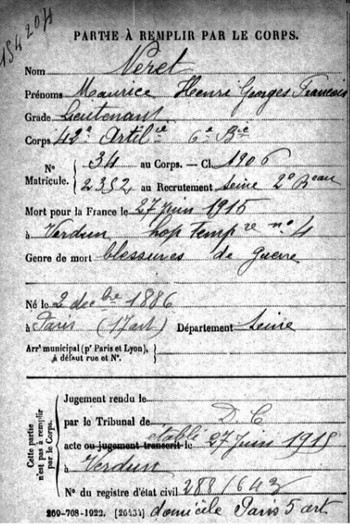 15420/4
PARTIE À REMPLIR PAR LE CORPS.
Nom Néret
Prénoms Maurice Henri Georges Francois
Grade Lieutenant
Corps 42e Artilie 6e Bie
No 34 au Corps. — Cl. 1906
Matricule. 2352 au Recrutement Seine 2e Beau
Mort pour la France le 27 Juin 1915
à Verdun hop tempre no 4
Genre de mort blessures de Guerre
Né le 2 decbre 1886
à Paris (17 art) Département Seine
Arrt municipal (pr Paris et Lyon),
à défaut rue et No.
Cette partie
n'est pas à remplir
par le Corps.
Jugement rendu le
par le Tribunal de D C
acte ou jugement transcrit le etabli 27 Juin 1915
à Verdun
No du registre d'état civil 288/643
269-708-1922. [26434] domicile Paris 5 art